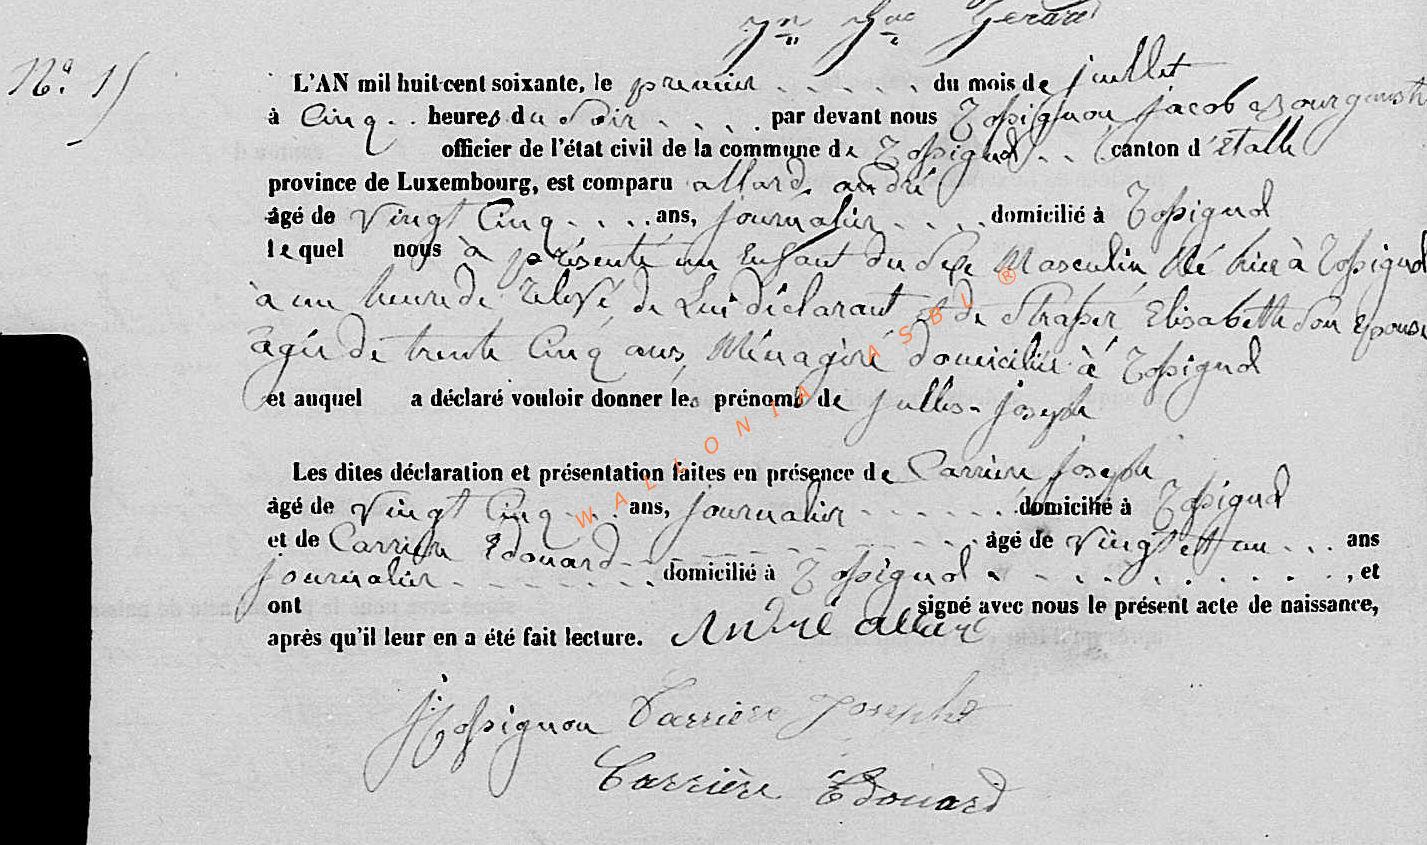 Jn Jac Gerard
N° 15
L'AN mil huit cent soixante, le premier du mois de juillet
à Cinq heures du Soir par devant nous Rossignon jacob Bourgmestr
officier de l'état civil de la commune de Rossignol canton d'étalle
province de Luxembourg, est comparu allard andré
âgé de Vingt Cinq ans, journalier domicilié à Rossignol
lequel nous à présenté un Enfant du Sexe Masculin Né hier à Rossignol
à un heure de de Lui déclarant et de Elisabeth Son Epouse
agée de trente Cinq ans, Ménagère domiciliée à Rossignol
et auquel a déclaré vouloir donner les prénoms de julles-joseph
Les dites déclaration et présentation faites en présence de Carrière joseph
âgé de Vingt Cinq ans, journalier domicilié à Rossignol
et de Carrière Edouard âgé de Vingt et un ans
journalier domicilié à Rossignol, et
ont signé avec nous le présent acte de naissance,
après qu'il leur en a été fait lecture. André allard
J Rossignon Carrière Joseph
Carrière Édouard
WALLONIA ASBL ®